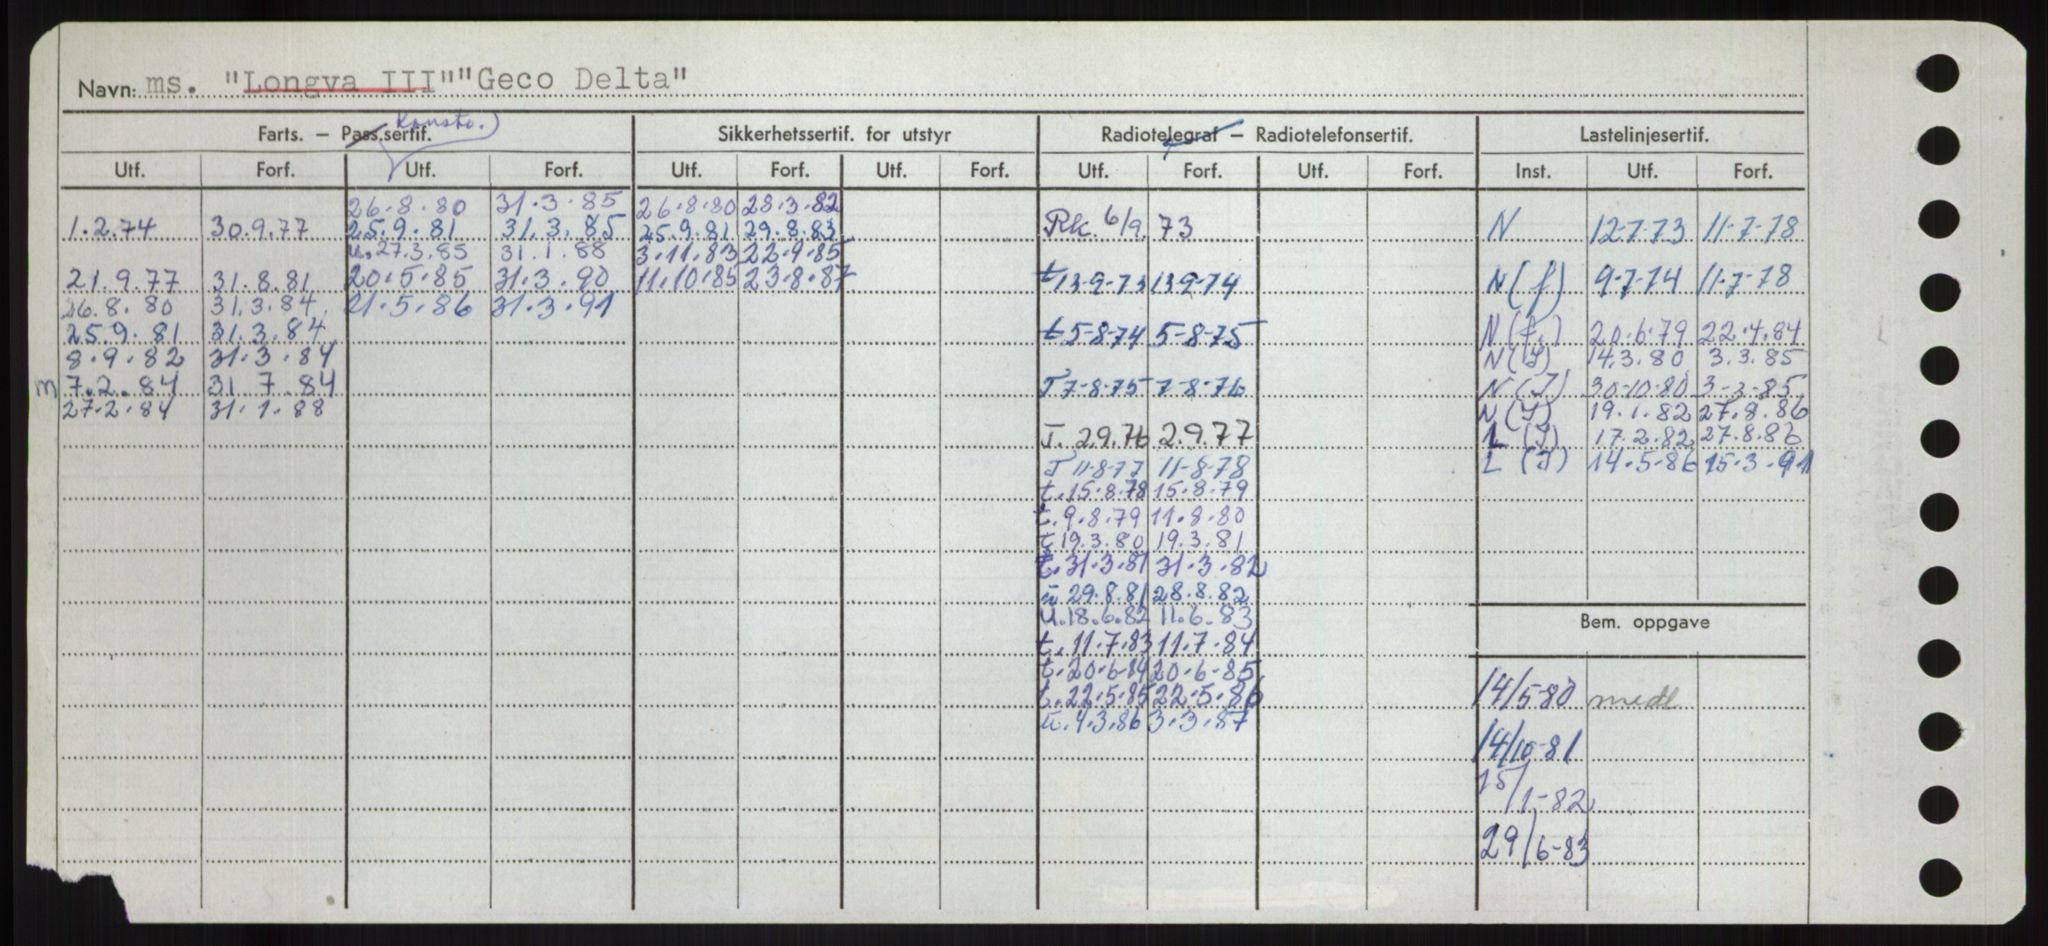 Navn: ms. "Longva III" "Geco Delta"
Farts. – Pass.sertif. Konstr.
Sikkerhetssertif. for utstyr
Radiotelegraf – Radiotelefonsertif.
Lastelinjesertif.
Utf. Forf. Utf. Forf. Utf. Forf. Utf. Forf. Utf. Forf. Utf. Forf. Inst. Utf. Forf.
1.2.74 30.9.77
21.9.77 31.8.81
26.8.80 31.3.84
25.9.81 31.3.84
8.9.82 31.3.84
m 7.2.84 31.7.84
27.2.84 31.1.88
26.8.80 31.3.85
25.9.81 31.3.85
u.27.3.85 31.1.88
20.5.85 31.3.90
21.5.86 31.3.91
26.8.80 28.3.82
25.9.81 29.8.83
3.11.83 22.9.85
11.10.85 23.8.87
Rk. 6/9. 73
t 13-9-73 13-9-74
t 5-8-74 5-8-75
T 7-8-75 7-8-76
T. 2.9.76 2.9.77
T 11-8-77 11-8-78
t.15.8.78 15.8.79
t.9.8.79 11.8.80
t 19.3.80 19.3.81
t.31.3.81 31.3.82
u 29.8.81 28.8.82
u.18.6.82 11.6.83
t.11.7.83 11.7.84
t.20.6.84 20.6.85
t.22.5.85 22.5.86
u.4.3.86 3.3.87
N 12-7-73 11-7-78
N (f) 9-7-74 11-7-78
N (f.) 20.6.79 22.4.84
N (I) 14.3.80 3.3.85
N (I) 30-10-80 3-3-85
N (I) 19.1.82 27.8.86
L (I) 17.2.82 27.8.86
L (I) 14.5.86 15.3.91
Bem. oppgave
14/5-80 medl
14/10-81
15/1-82
29/6-83